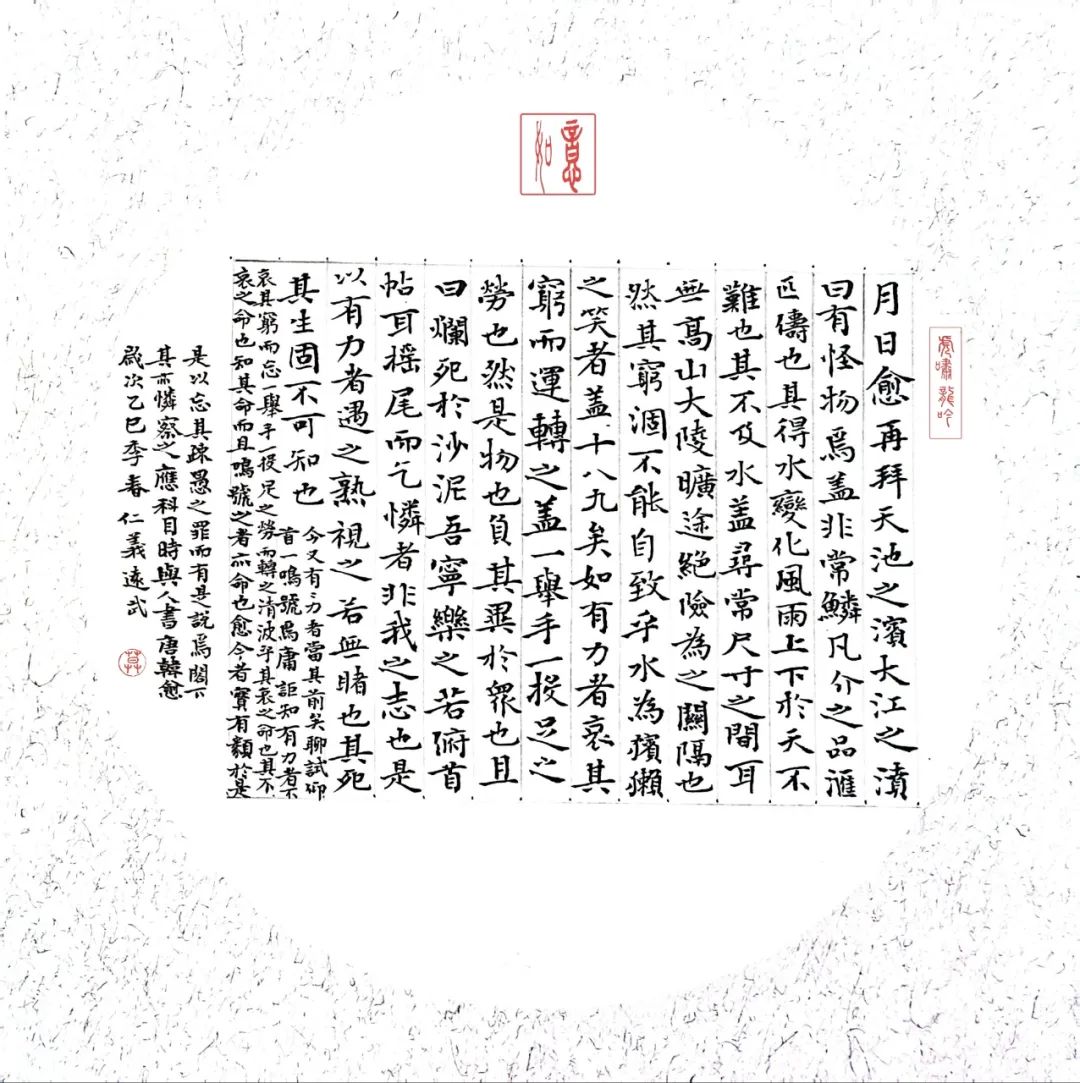 如意
虎嘯龍吟
月日愈再拜天池之濱大江之濆
曰有怪物焉盖非常鱗凡介之品滙
匹儔也其得水變化風雨上下於天不
難也其不及水盖尋常尺寸之間耳
無高山大陵曠途絕險為之關隔也
然其窮涸不能自致乎水為獱獺
之笑者盖十八九矣如有力者哀其
窮而運轉之盖一舉手一投足之
勞也然是物也負其異於衆也且
曰爛死於沙泥吾寧樂之若俯首
帖耳摇尾而乞憐者非我之志也是
以有力者遇之熟視之若無睹也其死
其生固不可知也
今又有力者當其前矣聊試仰
首一鳴號焉庸詎知有力者不
哀其窮而忘一舉手一投足之勞而轉之清波乎其哀之命也其不
哀之命也知其命而且鳴號之者亦命也愈今者實有類於是
是以忘其疎愚之罪而有是說焉閣下
其亦憐察之應科目時與人書唐韓愈
歲次乙巳季春仁義遠武